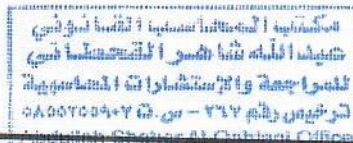 مكتب المحاسب القانوني
عبدالله شاهر القحطاني
للمراجعة والإستشارات المحاسبية
ترخيص رقم ٢٦٧ - س.ت
Abdullah Shaher Al Qahtani Office